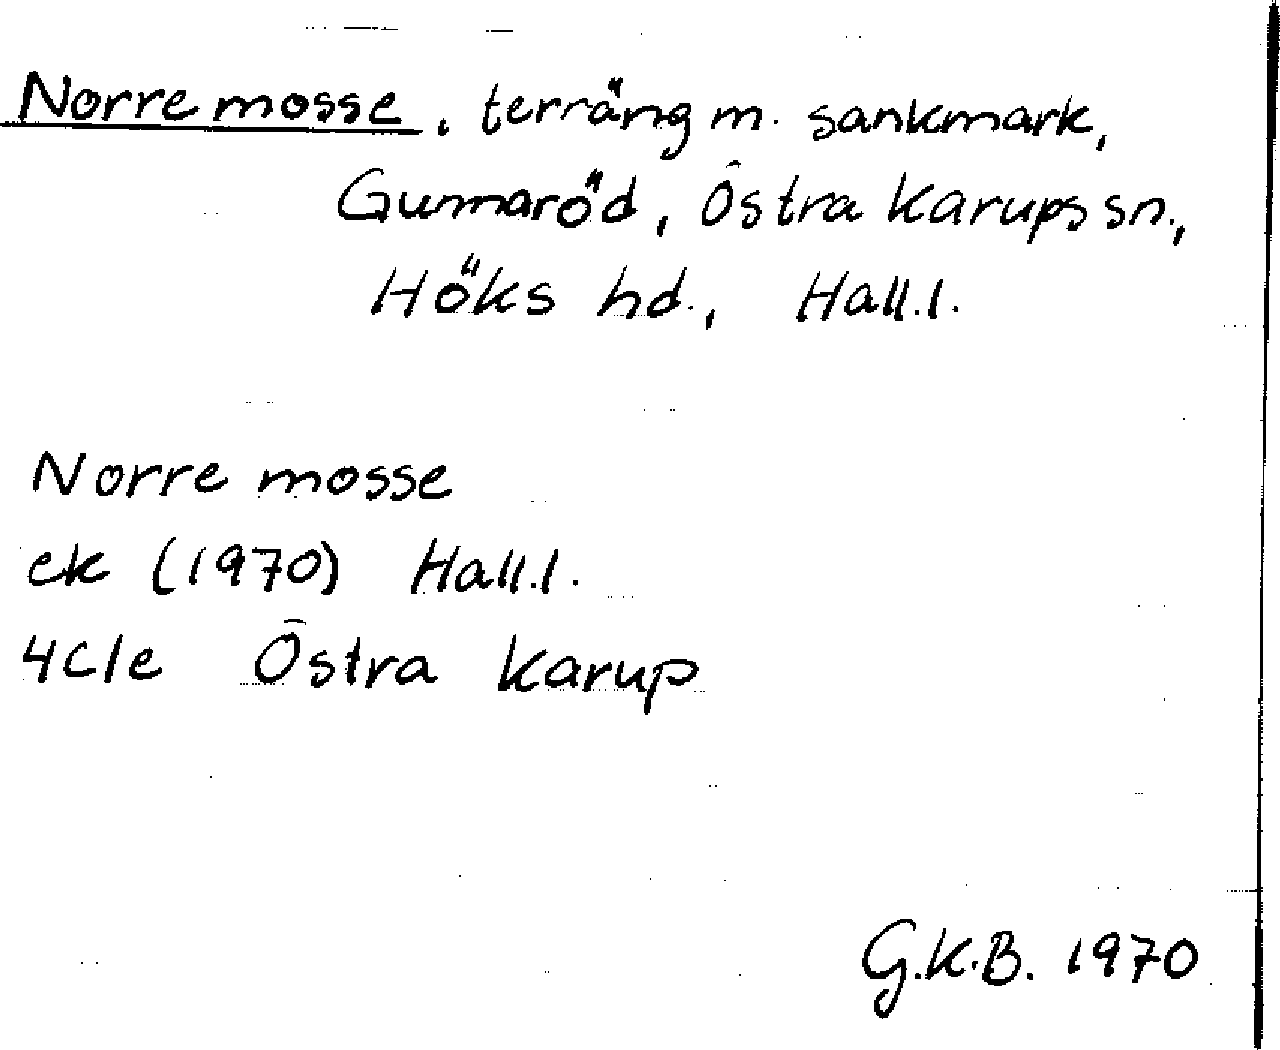 Norre mosse, terräng m. sankmark,
Gumaröd, Östra Karups sn.,
Höks hd., Hall.l.
Norre mosse
ek (1970) Hall.l.
4C1e Östra Karup
G.K.B. 1970